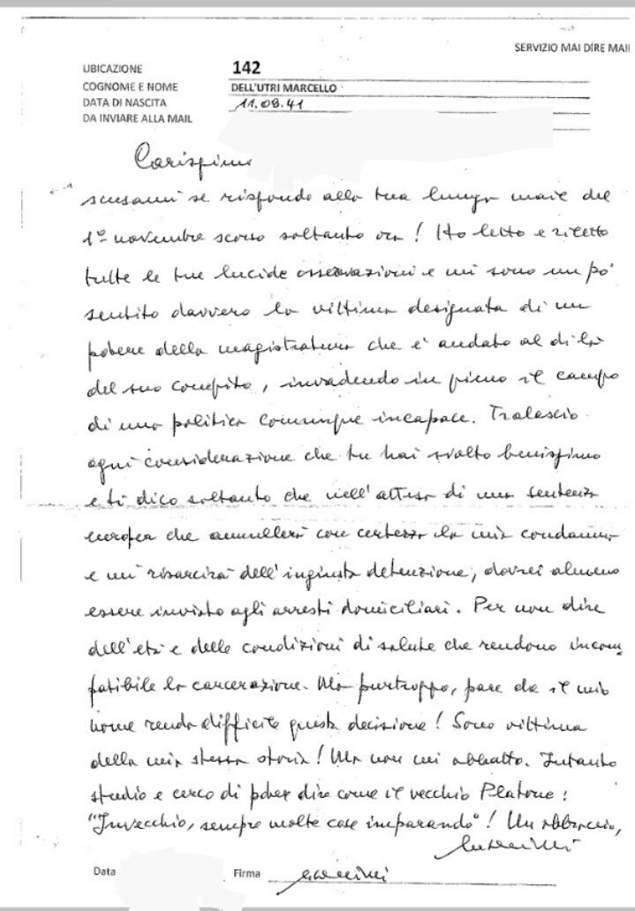 SERVIZIO MAI DIRE MAIL
UBICAZIONE 142
COGNOME E NOME DELL'UTRI MARCELLO
DATA DI NASCITA 11.09.41
DA INVIARE ALLA MAIL
Carissimo
scusami se rispondo alla tua lunga mail del
1º novembre scorso soltanto ora! Ho letto e riletto
tutte le tue lucide osservazioni e mi sono un po'
sentito davvero la vittima designata di un
potere della magistratura che è andato al di là
del suo compito, invadendo in pieno il campo
di una politica comunque incapace. Tralascio
ogni considerazione che tu hai svolto benissimo
e ti dico soltanto che nell'attesa di una sentenza
europea che annullerà con certezza la mia condanna
e mi risarcirà dell'ingiusta detenzione, dovrei almeno
essere inviato agli arresti domiciliari. Per non dire
dell'età e delle condizioni di salute che rendono incom
patibile la carcerazione. Ma purtroppo, pare che il mio
nome renda difficile questa decisione! Sono vittima
della mia stessa storia! Ma non mi abbatto. Intanto
studio e cerco di poter dire come il vecchio Platone:
"Invecchio, sempre molte cose imparando"! Un abbraccio,
Data Firma